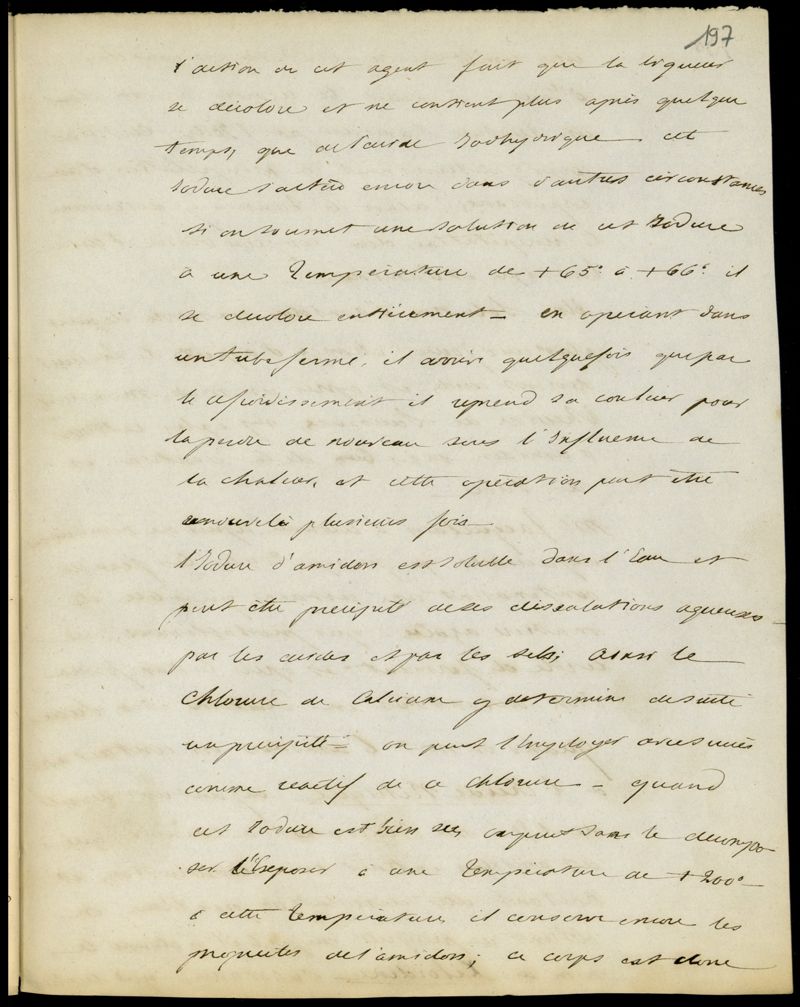 197
l'action de cet agent fait que la liqueur
se décolore et ne contient plus après quelque
temps, que de l'acide Iodhydrique cet
Iodure s'altère encore dans d'autres circonstances
si on soumet une solution de cet Iodure
à une température de +65° à +66° il
se décolore entièrement – en opérant dans
un tube fermé, il arrive quelquefois que par
le refroidissement il reprend sa couleur pour
la perdre de nouveau sous l'Influence de
la chaleur, et cette opération peut être
renouvelée plusieurs fois
l'Iodure d'amidon est soluble dans l'Eau et
peut être précipité de ses dissolutions aqueuses
par les acides et par les sels; ainsi le
Chlorure de Calcium y détermine de suite
un précipité – on peut l'Employer avec succès
comme réactif de ce Chlorure – quand
cet Iodure est bien sec on peut sans le décompo
ser l'Exposer à une température de +200°
à cette température il conserve encore les
propriétés de l'amidon; ce corps est donc